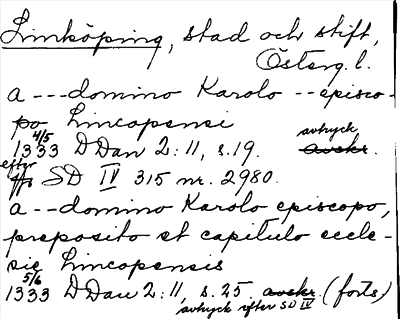 Linköping, stad och stift,
Österg. l.
a --- domino Karolo -- episco-
po Lincopensi
1333 4/5 D Dan 2:11, s. 19. avskr. avtryck
efter SD IV 315 nr. 2980.
a -- domino Karolo episcopo,
preposito et capitulo eccle-
sie Lincopensis
1333 5/6 D Dan 2:11, s. 25 avskr. (forts)
avtryck efter SD IV